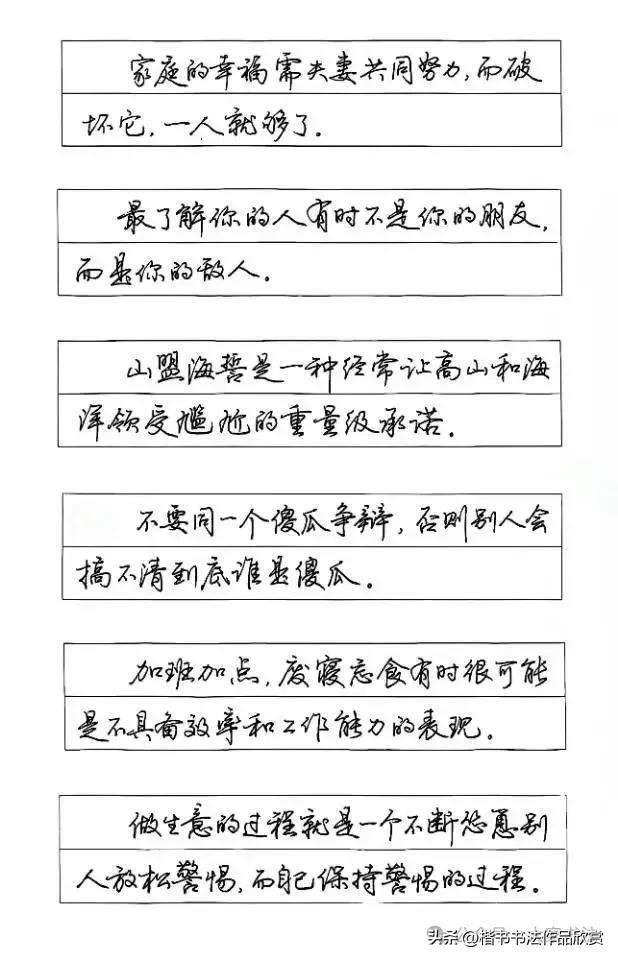 家庭的幸福需夫妻共同努力,而破
坏它,一人就够了.
最了解你的人有时不是你的朋友,
而是你的敌人.
山盟海誓是一种经常让高山和海
洋领受尴尬的重量级承诺.
不要同一个傻瓜争辩,否则别人会
搞不清到底谁是傻瓜.
加班加点,废寝忘食有时很可能
是不具备效率和工作能力的表现.
做生意的过程就是一个不断怂恿别
人放松警惕,而自己保持警惕的过程.
头条@楷书书法作品欣赏